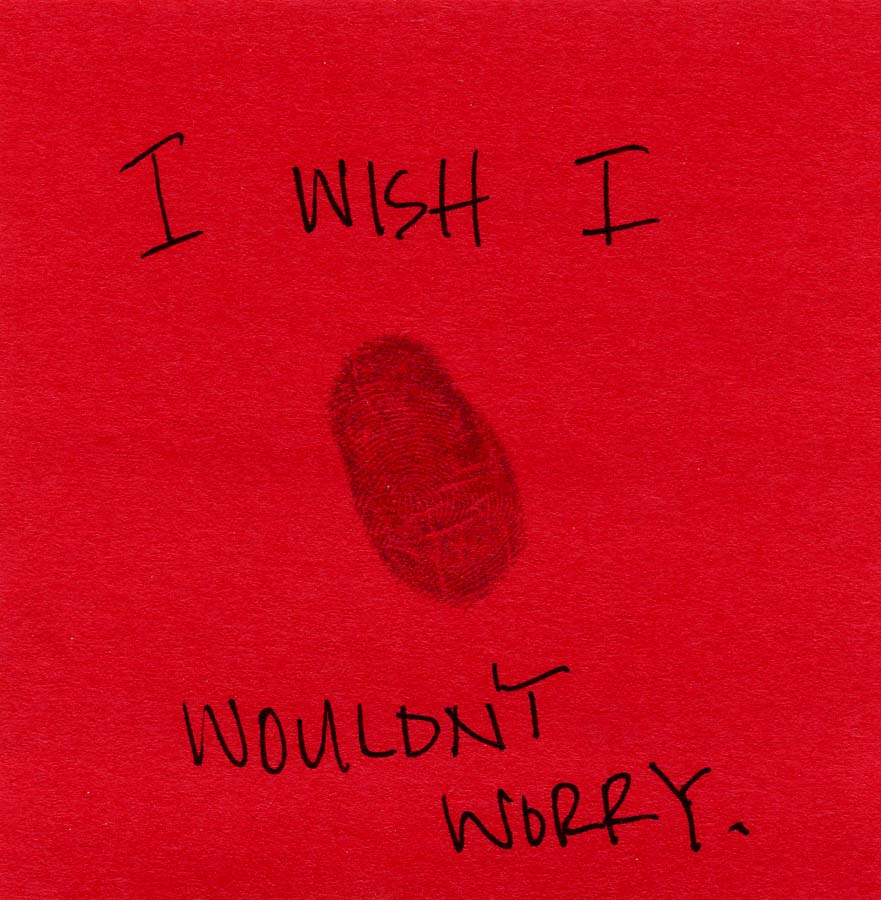 I WISH I
WOULDN'T
WORRY.